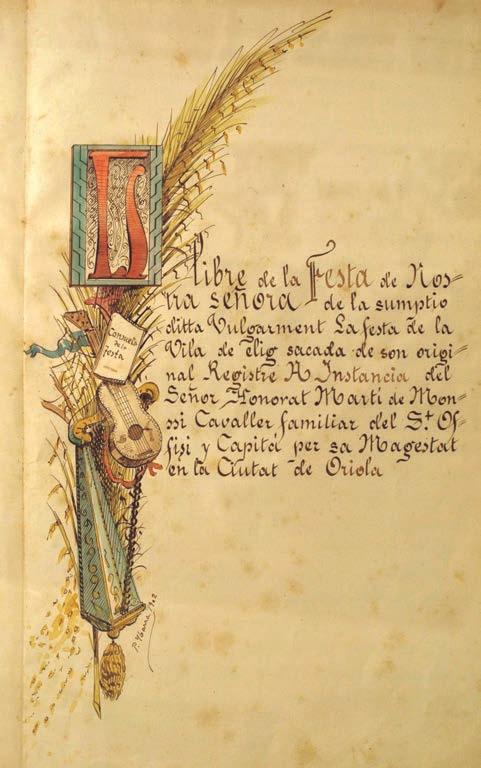 L
Consueta
de la
festa
llibre de la Festa de Nos=
tra señora de la sumptio
ditta Vulgarment La festa de la
Vila de Elig sacada de son origi=
nal Registre A Instancia del
Señor Honorat Martí de Mon=
si Cavaller familiar del S.t Of=
fisi y Capitá per sa Magestat
en la Ciutat de Oriola
P. Ibarra 1902